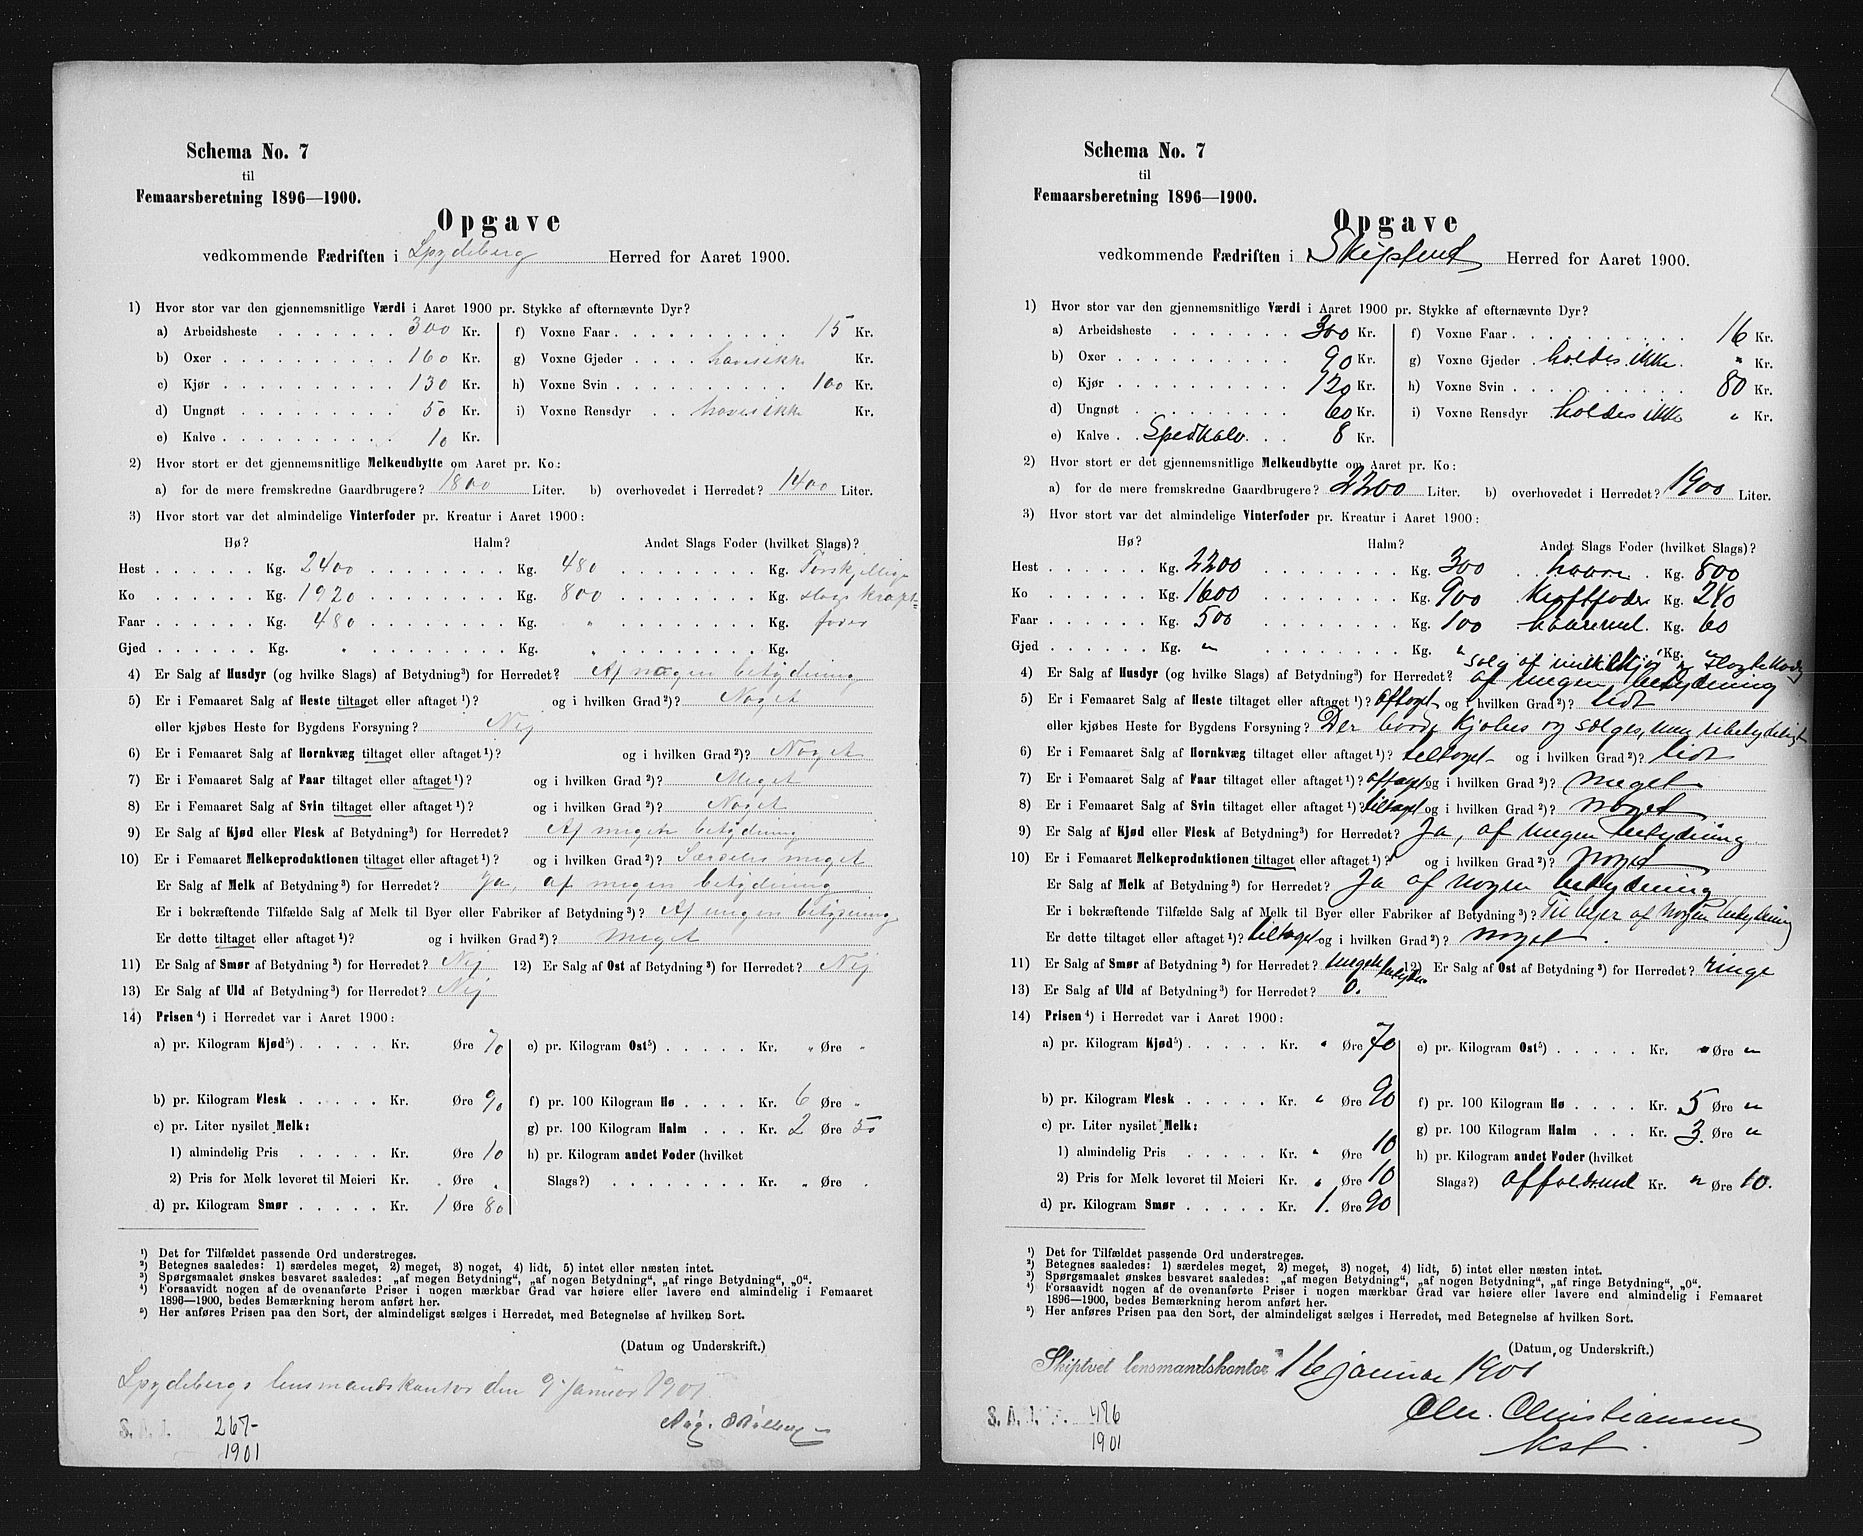 Schema No. 7
til
Femaarsberetning 1896—1900.
Opgave
vedkommende Fædriften i Spydeberg Herred for Aaret 1900.
1) Hvor stor var den gjennemsnitlige Værdi i Aaret 1900 pr. Stykke af efternævnte Dyr?
a) Arbeidsheste . . . . . . . 300 Kr. f) Voxne Faar . . . . . . . . . . 15 Kr.
b) Oxer . . . . . . . . . . 160 Kr. g) Voxne Gjeder . . . . haves ikke Kr.
c) Kjør . . . . . . . . . . 130 Kr. h) Voxne Svin . . . . . . . . . . 100 Kr.
d) Ungnøt . . . . . . . . . 50 Kr. i) Voxne Rensdyr . . haves ikke Kr.
e) Kalve . . . . . . . . . . 10 Kr.
2) Hvor stort er det gjennemsnitlige Melkeudbytte om Aaret pr. Ko:
a) for de mere fremskredne Gaardbrugere? 1800 Liter. b) overhovedet i Herredet? 1400 Liter.
3) Hvor stort var det almindelige Vinterfoder pr. Kreatur i Aaret 1900:
Hø? Halm? Andet Slags Foder (hvilket Slags)?
Hest . . . . . . Kg. 2400 . . . . . . . . Kg. 480 . . . . . . . . Kg. Forskjellige
Ko . . . . . . Kg. 1920 . . . . . . . . Kg. 800 . . . . . . . . Kg. slags Kraft=
Faar . . . . . . Kg. 480 . . . . . . . . Kg. " . . . . . . . . Kg. foder
Gjed . . . . . . Kg. " . . . . . . . . Kg. " . . . . . . . . Kg.
4) Er Salg af Husdyr (og hvilke Slags) af Betydning³) for Herredet? Af nogen betydning
5) Er i Femaaret Salg af Heste tiltaget eller aftaget¹)? og i hvilken Grad²)? Noget
eller kjøbes Heste for Bygdens Forsyning? Nej
6) Er i Femaaret Salg af Hornkvæg tiltaget eller aftaget¹)? og i hvilken Grad²)? Noget
7) Er i Femaaret Salg af Faar tiltaget eller aftaget¹)? og i hvilken Grad²)? Meget
8) Er i Femaaret Salg af Svin tiltaget eller aftaget¹)? og i hvilken Grad²)? Noget
9) Er Salg af Kjød eller Flesk af Betydning³) for Herredet? Af megen betydning
10) Er i Femaaret Melkeproduktionen tiltaget eller aftaget¹)? og i hvilken Grad²)? Særdeles meget
Er Salg af Melk af Betydning³) for Herredet? Ja, af megen betydning
Er i bekræftende Tilfælde Salg af Melk til Byer eller Fabriker af Betydning³)? Af megen betydning
Er dette tiltaget eller aftaget¹)? og i hvilken Grad²)? meget
11) Er Salg af Smør af Betydning³) for Herredet? Nej 12) Er Salg af Ost af Betydning³) for Herredet? Nej
13) Er Salg af Uld af Betydning³) for Herredet? Nej
14) Prisen⁴) i Herredet var i Aaret 1900:
a) pr. Kilogram Kjød⁵) . . . . . Kr. Øre 70 e) pr. Kilogram Ost⁵) . . . . . Kr. " Øre "
b) pr. Kilogram Flesk . . . . . Kr. Øre 90 f) pr. 100 Kilogram Hø . . . . Kr. 6 Øre "
c) pr. Liter nysilet Melk: g) pr. 100 Kilogram Halm . . . Kr. 2 Øre 50
1) almindelig Pris . . . . . Kr. Øre 10 h) pr. Kilogram andet Foder (hvilket
2) Pris for Melk leveret til Meieri Kr. " Øre " Slags?) . . . . . . . . . Kr. " Øre "
d) pr. Kilogram Smør . . . . . Kr. 1 Øre 80
¹) Det for Tilfældet passende Ord understreges.
²) Betegnes saaledes: 1) særdeles meget, 2) meget, 3) noget, 4) lidt, 5) intet eller næsten intet.
³) Spørgsmaalet ønskes besvaret saaledes: „af megen Betydning“, „af nogen Betydning“, „af ringe Betydning“, „0“.
⁴) Forsaavidt nogen af de ovenanførte Priser i nogen mærkbar Grad var høiere eller lavere end almindelig i Femaaret
1896—1900, bedes Bemærkning herom anført her.
⁵) Her anføres Prisen paa den Sort, der almindeligst sælges i Herredet, med Betegnelse af hvilken Sort.
(Datum og Underskrift.)
Spydebergs lensmandskontor den 9 januar 1901.
S. A. J. 267-
1901
Schema No. 7
til
Femaarsberetning 1896—1900.
Opgave
vedkommende Fædriften i Skiptvet Herred for Aaret 1900.
1) Hvor stor var den gjennemsnitlige Værdi i Aaret 1900 pr. Stykke af efternævnte Dyr?
a) Arbeidsheste . . . . . . . 300 Kr. f) Voxne Faar . . . . . . . . . . 16 Kr.
b) Oxer . . . . . . . . . . 90 Kr. g) Voxne Gjeder holdes ikke " Kr.
c) Kjør . . . . . . . . . . 120 Kr. h) Voxne Svin . . . . . . . . . . 80 Kr.
d) Ungnøt . . . . . . . . . 60 Kr. i) Voxne Rensdyr holdes ikke " Kr.
e) Kalve . . Spedkalv . . . 8 Kr.
2) Hvor stort er det gjennemsnitlige Melkeudbytte om Aaret pr. Ko:
a) for de mere fremskredne Gaardbrugere? 2200 Liter. b) overhovedet i Herredet? 1900 Liter.
3) Hvor stort var det almindelige Vinterfoder pr. Kreatur i Aaret 1900:
Hø? Halm? Andet Slags Foder (hvilket Slags)?
Hest . . . . . . Kg. 2200 . . . . . . . . Kg. 300 . . havre . Kg. 800
Ko . . . . . . Kg. 1600 . . . . . . . . Kg. 900 Kraftfoder Kg. 240
Faar . . . . . . Kg. 500 . . . . . . . . Kg. 100 havremel Kg. 60
Gjed . . . . . . Kg. " . . . . . . . . Kg. " Kg. "
4) Er Salg af Husdyr (og hvilke Slags) af Betydning³) for Herredet? Salg af melkekjør og Slagtekvæg
af megen betydning
5) Er i Femaaret Salg af Heste tiltaget eller aftaget¹)? aftaget og i hvilken Grad²)? lidt
eller kjøbes Heste for Bygdens Forsyning? Der baade kjøbes og sælges, men ubetydeligt
6) Er i Femaaret Salg af Hornkvæg tiltaget eller aftaget¹)? tiltaget og i hvilken Grad²)? lidt
7) Er i Femaaret Salg af Faar tiltaget eller aftaget¹)? aftaget og i hvilken Grad²)? meget
8) Er i Femaaret Salg af Svin tiltaget eller aftaget¹)? tiltaget og i hvilken Grad²)? noget
9) Er Salg af Kjød eller Flesk af Betydning³) for Herredet? Ja, af megen betydning
10) Er i Femaaret Melkeproduktionen tiltaget eller aftaget¹)? og i hvilken Grad²)? noget
Er Salg af Melk af Betydning³) for Herredet? Ja af nogen betydning
Er i bekræftende Tilfælde Salg af Melk til Byer eller Fabriker af Betydning³)? Til byer af nogen betydning
Er dette tiltaget eller aftaget¹)? tiltaget og i hvilken Grad²)? noget.
11) Er Salg af Smør af Betydning³) for Herredet? megen betydn. 12) Er Salg af Ost af Betydning³) for Herredet? ringe
13) Er Salg af Uld af Betydning³) for Herredet? 0.
14) Prisen⁴) i Herredet var i Aaret 1900:
a) pr. Kilogram Kjød⁵) . . . . . Kr. " Øre 70 e) pr. Kilogram Ost⁵) . . . . . Kr. " Øre "
b) pr. Kilogram Flesk . . . . . Kr. " Øre 90 f) pr. 100 Kilogram Hø . . . . Kr. 5 Øre "
c) pr. Liter nysilet Melk: g) pr. 100 Kilogram Halm . . . Kr. 3. Øre "
1) almindelig Pris . . . . . Kr. " Øre 10 h) pr. Kilogram andet Foder (hvilket
2) Pris for Melk leveret til Meieri Kr. " Øre 10 Slags?) affaldsmel Kr. " Øre 10.
d) pr. Kilogram Smør . . . . . Kr. 1. Øre 90
¹) Det for Tilfældet passende Ord understreges.
²) Betegnes saaledes: 1) særdeles meget, 2) meget, 3) noget, 4) lidt, 5) intet eller næsten intet.
³) Spørgsmaalet ønskes besvaret saaledes: „af megen Betydning“, „af nogen Betydning“, „af ringe Betydning“, „0“.
⁴) Forsaavidt nogen af de ovenanførte Priser i nogen mærkbar Grad var høiere eller lavere end almindelig i Femaaret
1896—1900, bedes Bemærkning herom anført her.
⁵) Her anføres Prisen paa den Sort, der almindeligst sælges i Herredet, med Betegnelse af hvilken Sort.
(Datum og Underskrift.)
Skiptvet lensmandskontor 16 januar 1901
Chr. Christiansen
Kst.
S. A. J. 476
1901